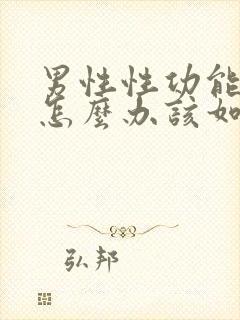 男性性功能
怎麼办該如
弘邦